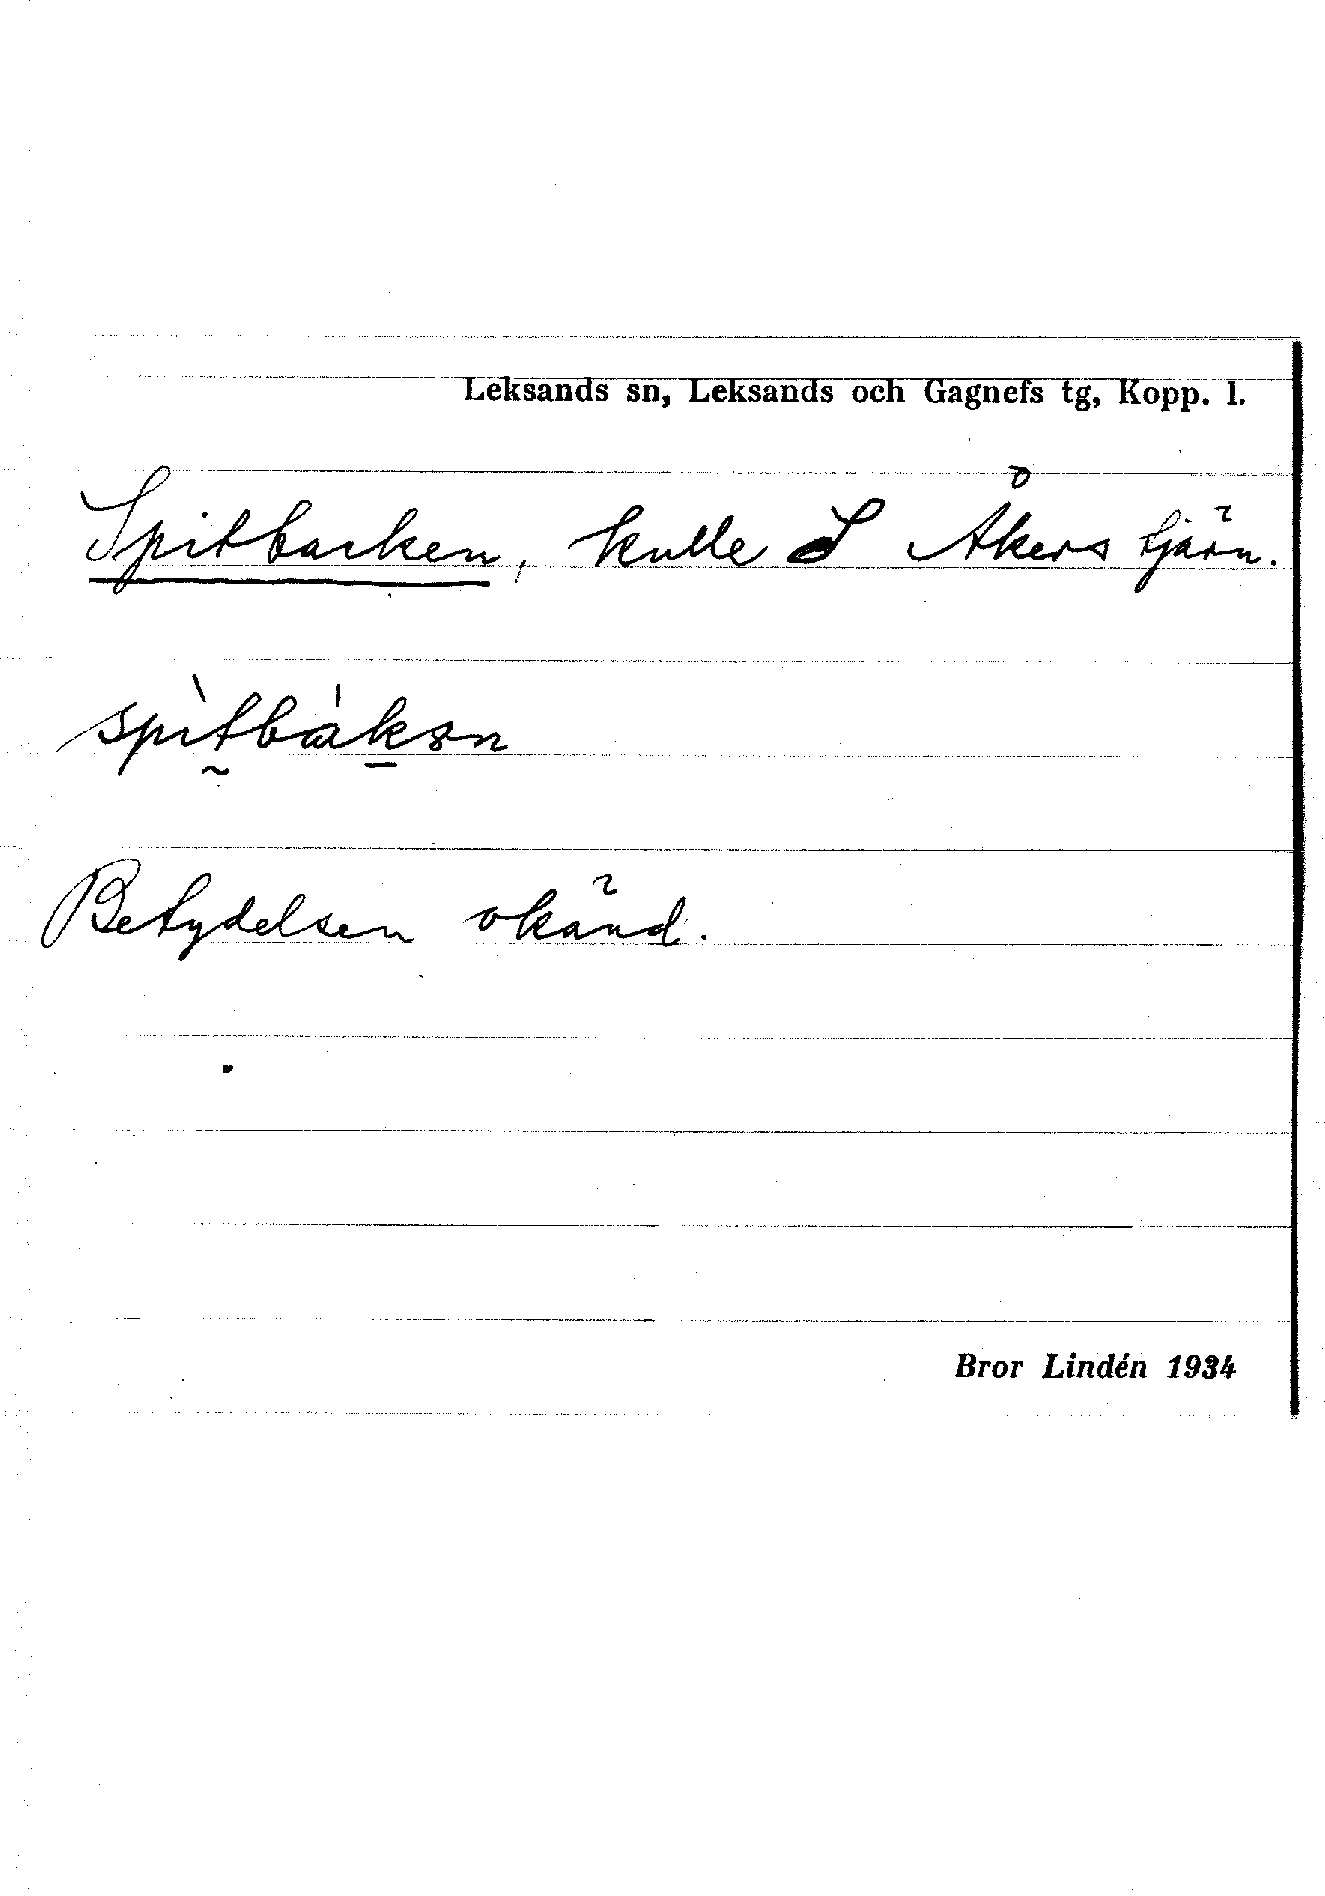 Leksands sn, Leksands och Gagnefs tg, Kopp. l.
Spitbacken, kulle S Åkers tjärn.
spìtbàkən
Betydelsen okänd.
Bror Lindén 1934